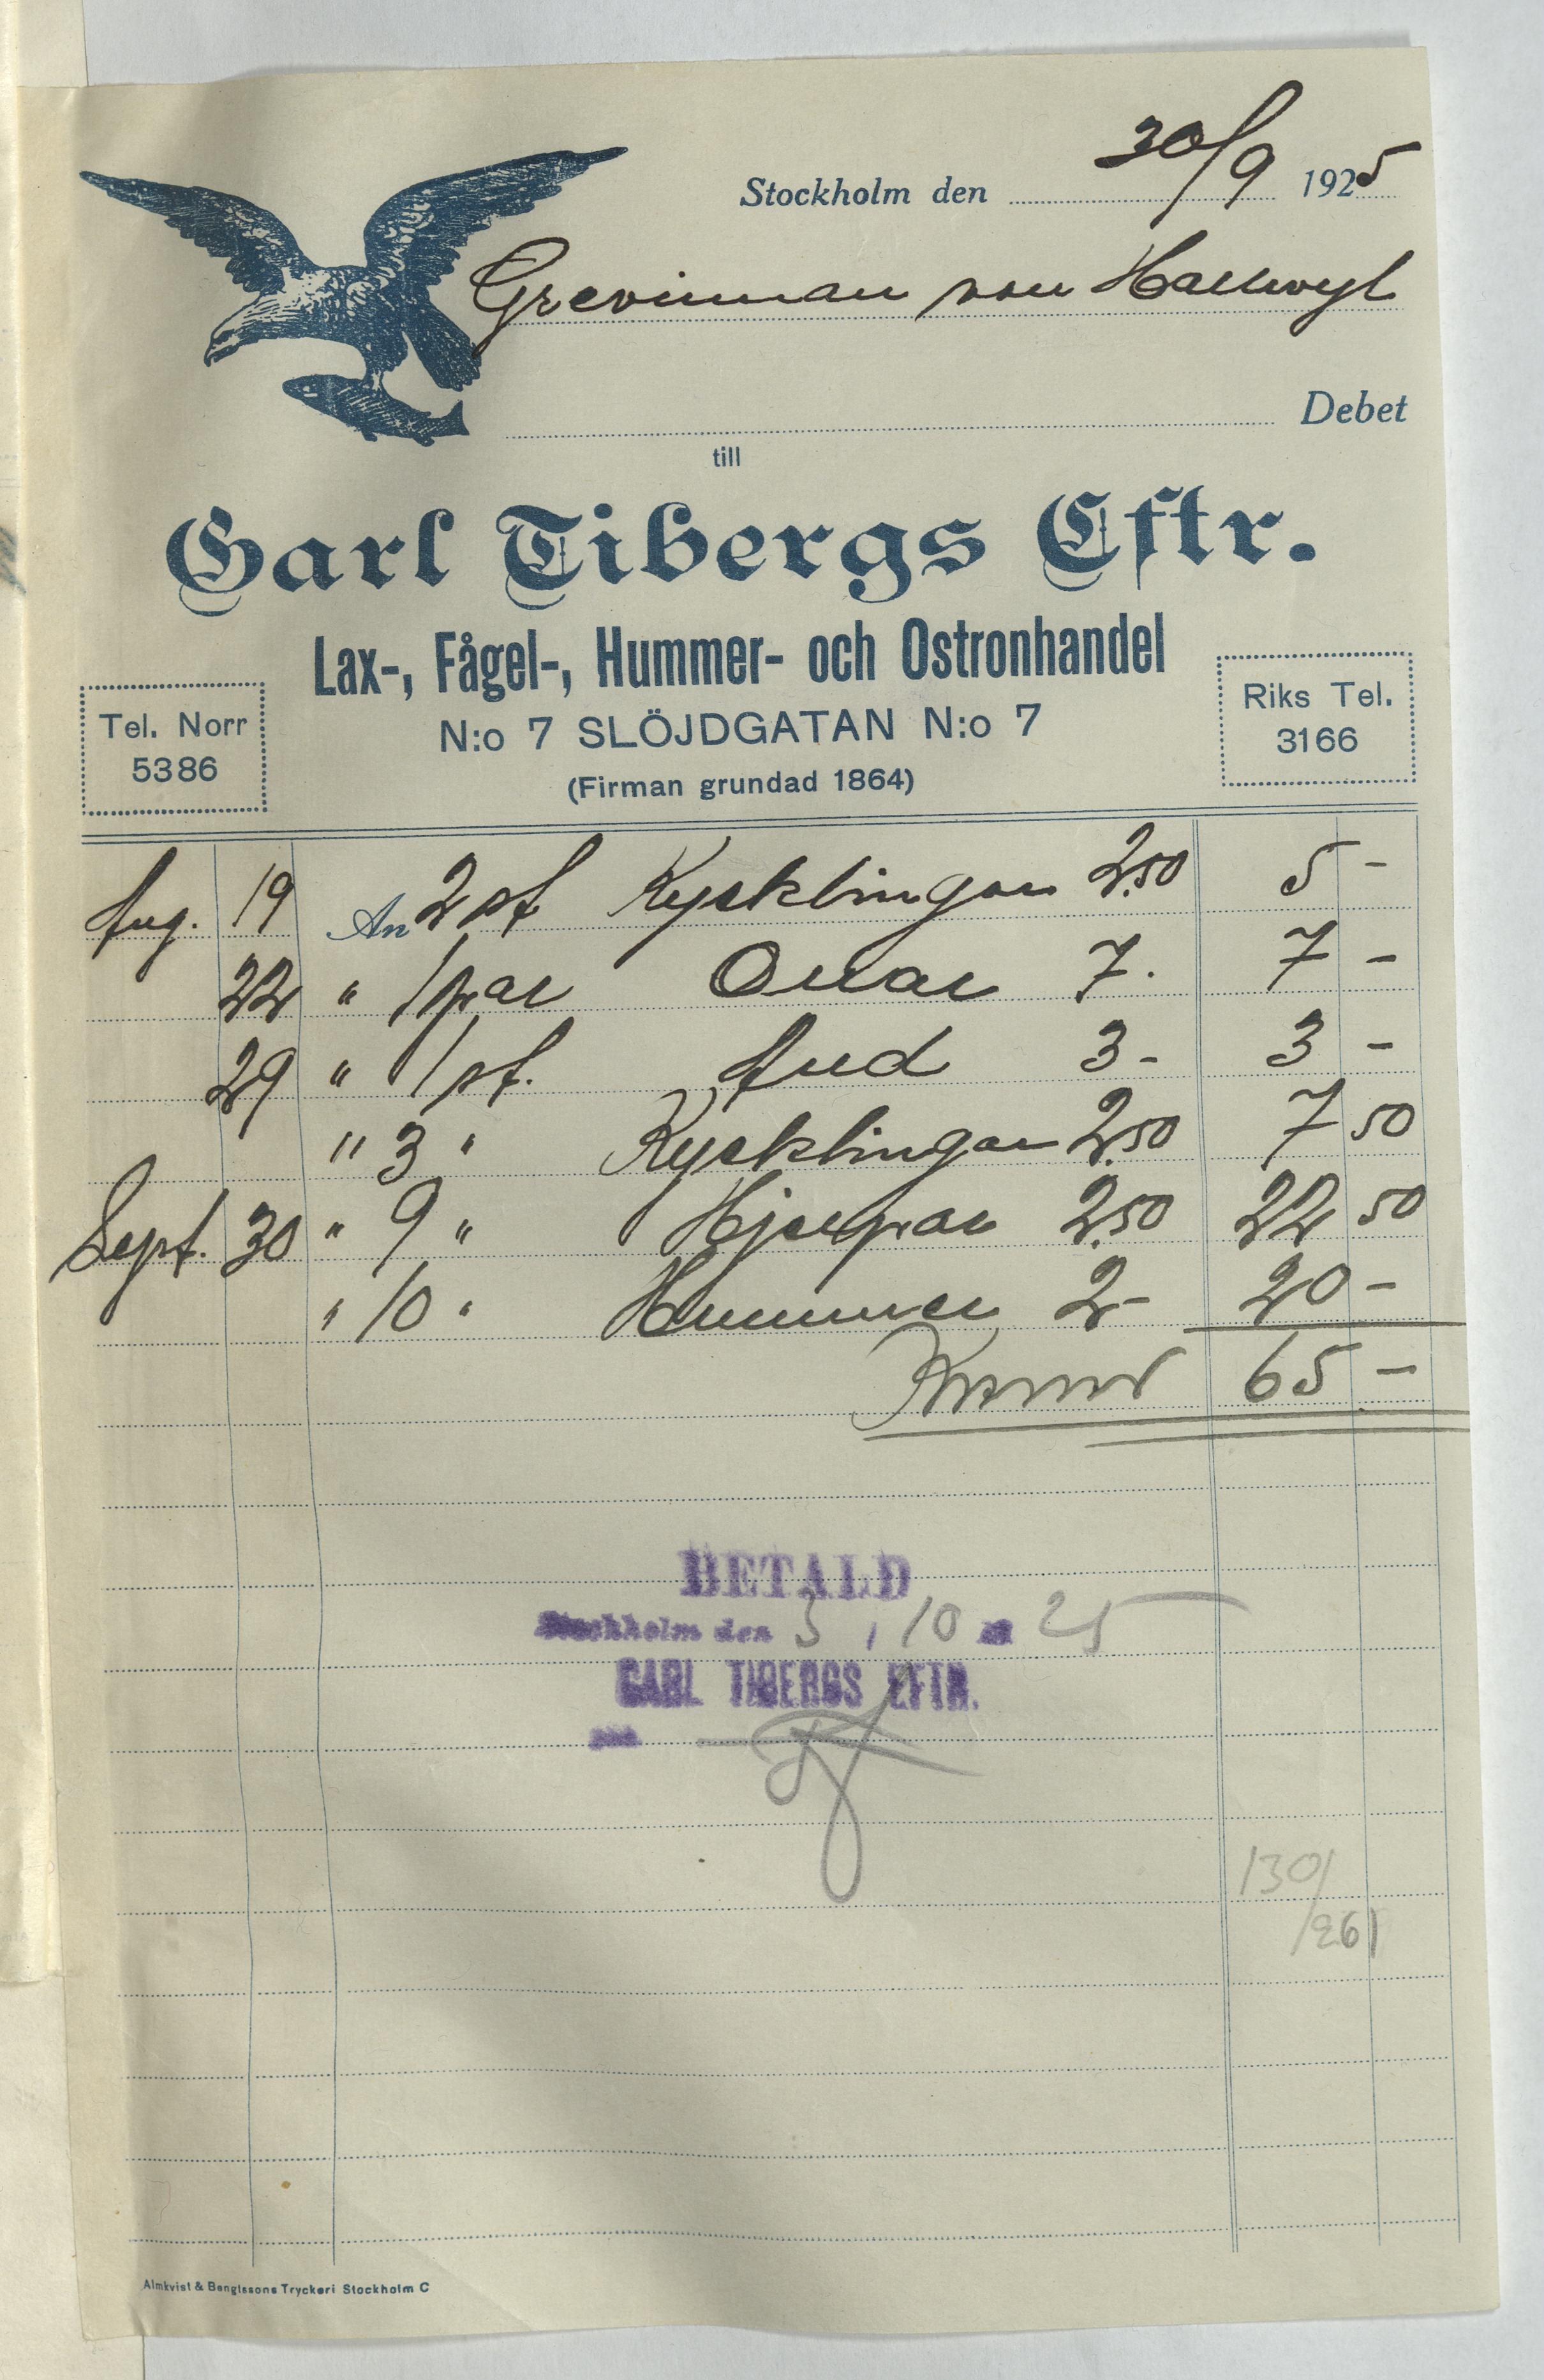 Stockholm den 30/9 1925
Grevinnan von Hallwyl
Debet
till
Carl Tibergs Eftr.
Lax-, Fågel-, Hummer- och Ostronhandel
Tel. Norr
5386
N:o 7 SLÖJDGATAN N:o 7
Riks Tel.
3166
(Firman grundad 1864)
Aug. 19 An 2 st Kycklingar 2.50 5 -
22 " 1 par Orrar 7. 7 -
29 " 1 st. And 3 - 3 -
" 3 " Kycklingar 2.50 7 50
Sept. 30 " 9 " Hjerpar 2.50 22 50
" 10 " Hummer 2 - 20 -
Kronor 65 -
BETALD
Stockholm den 3 / 10 25
CARL TIBERGS EFTR.
130/
/261
Almkvist & Bengtssons Tryckeri Stockholm C